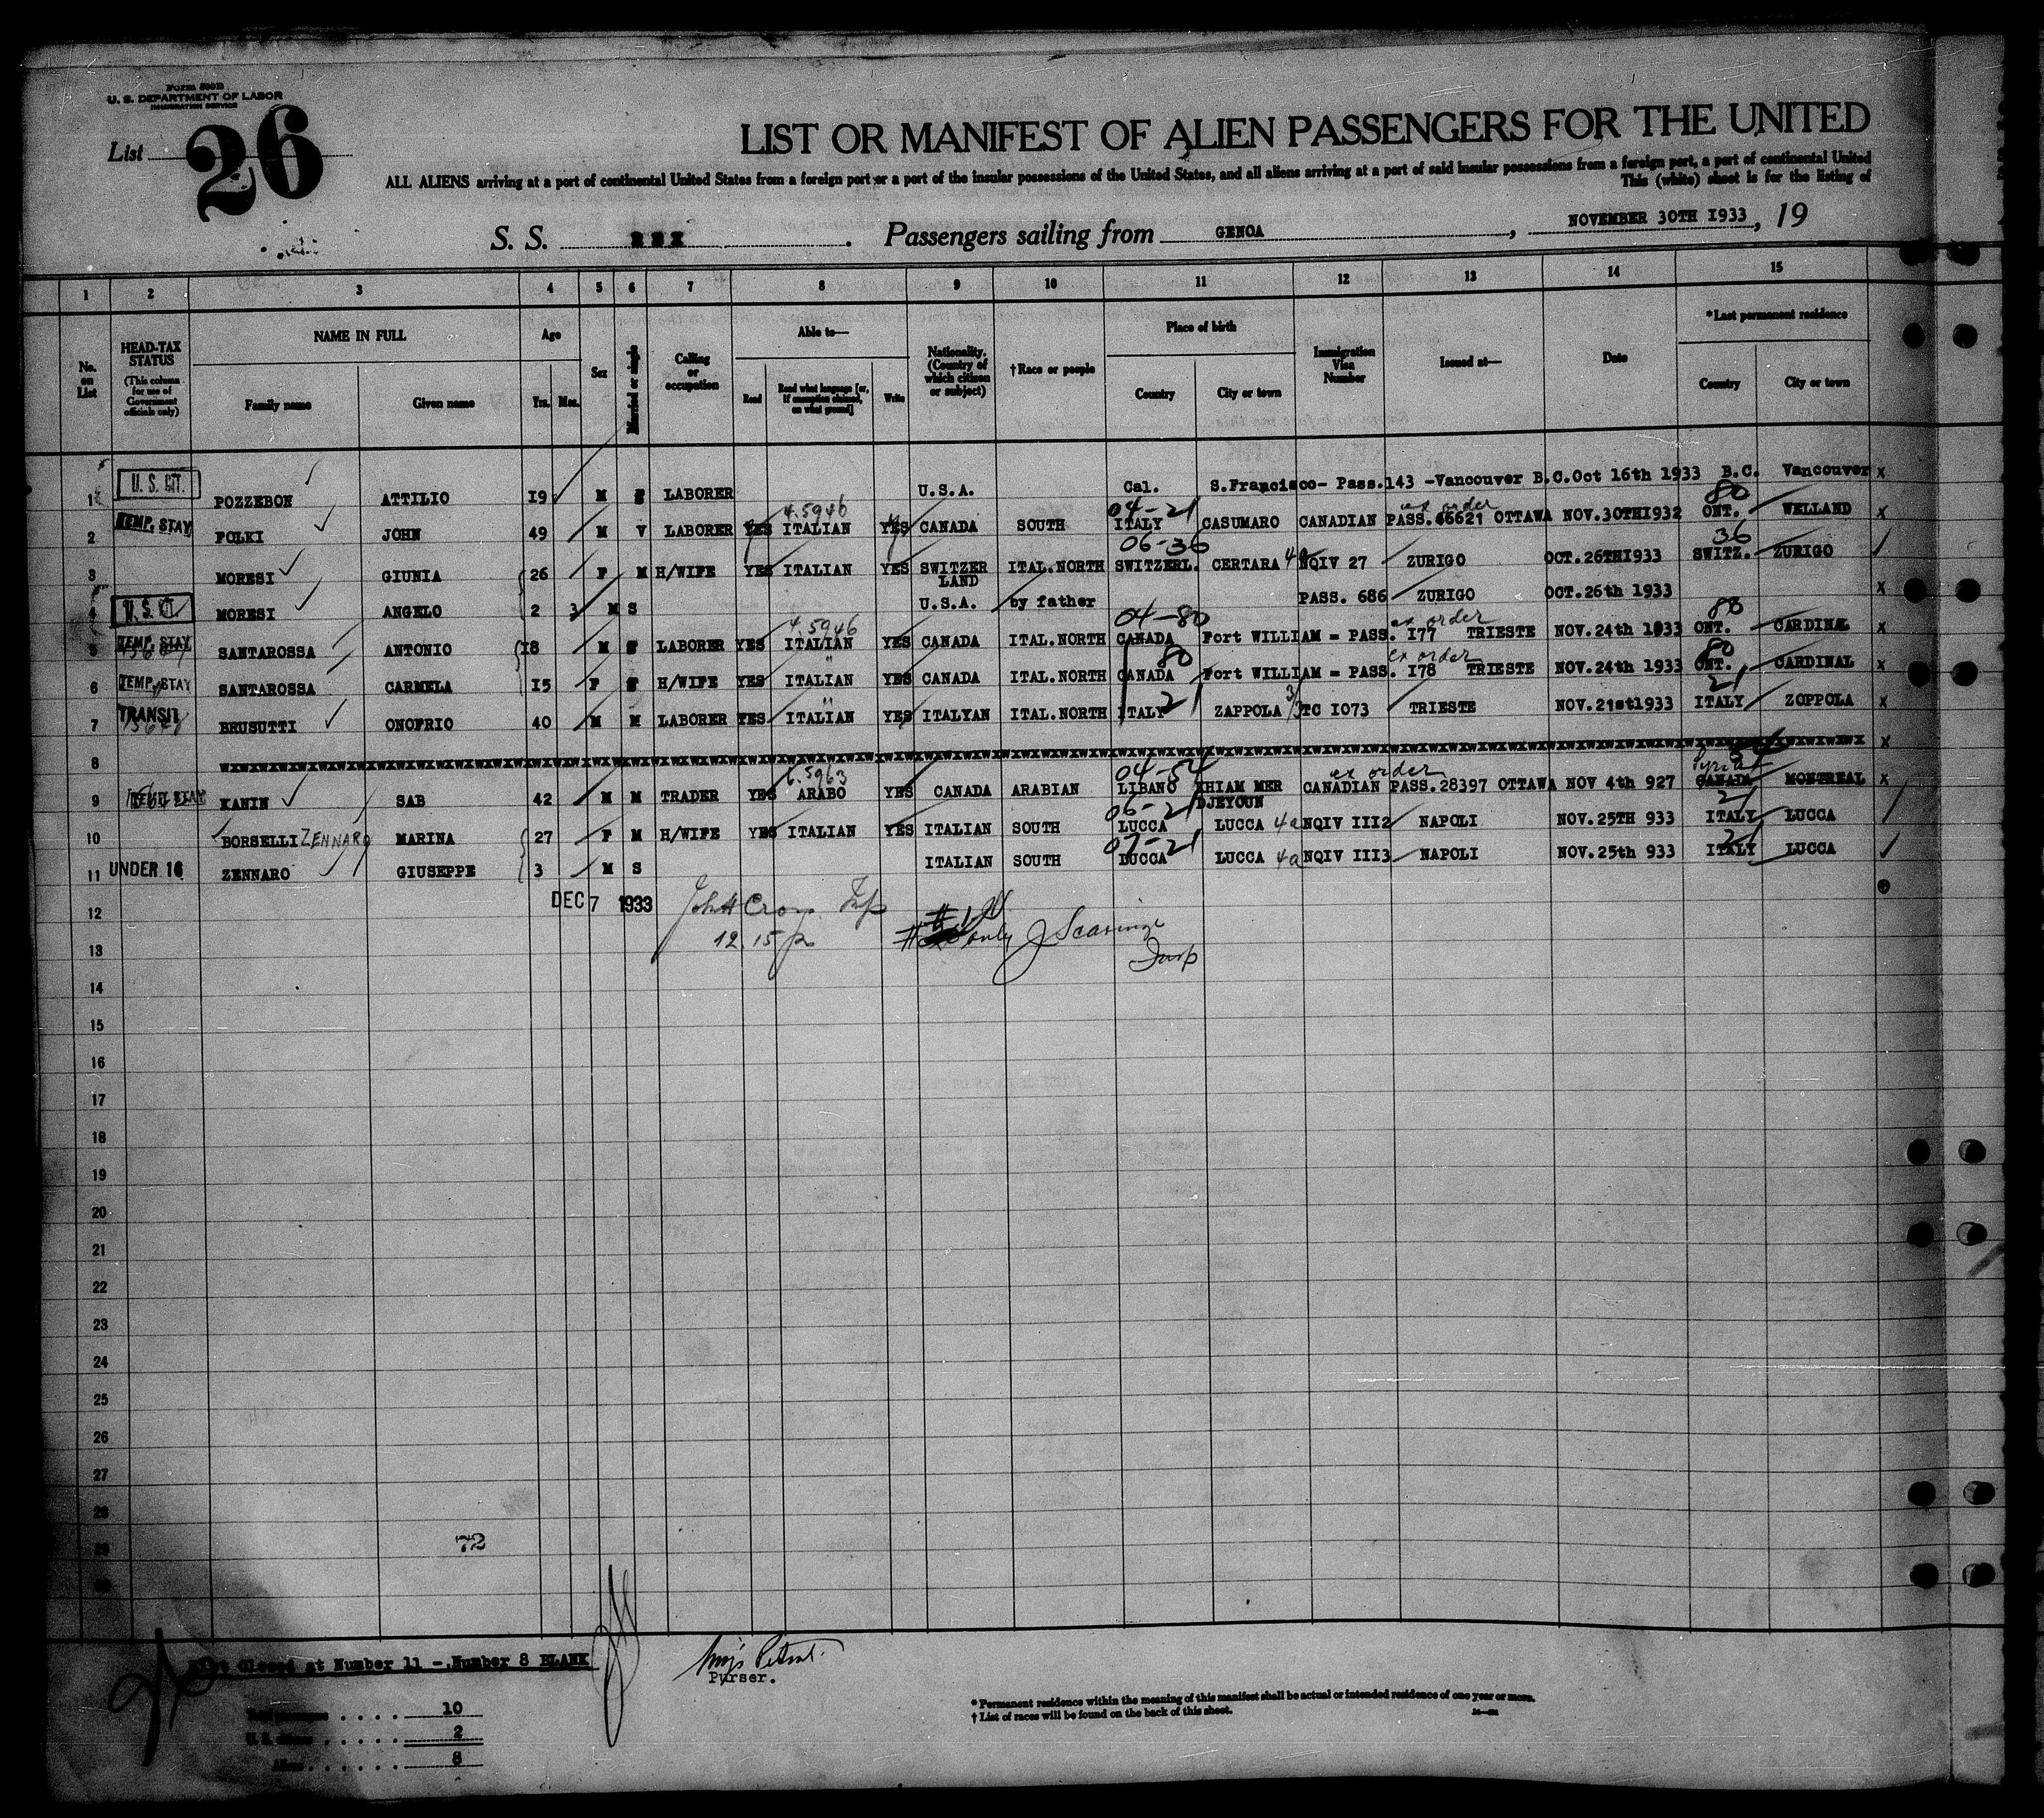 Form 500B
U. S. DEPARTMENT OF LABOR
IMMIGRATION SERVICE
List 26
LIST OR MANIFEST OF ALIEN PASSENGERS FOR THE UNITED
ALL ALIENS arriving at a port of continental United States from a foreign port or a part of the insular possessions of the United States, and all aliens arriving at a port of said insular possessions from a foreign port, a part of continental United
This (white) sheet is for the listing of
S. S. REX. Passengers sailing from GENOA, NOVEMBER 30TH 1933, 19
1 2 3 4 5 6 7 8 9 10 11 12 13 14 15
No. on List
HEAD-TAX STATUS (This column for use of Government officials only)
NAME IN FULL Family name Given name
Age Yrs. Mos.
Sex
Married or single
Calling or occupation
Able to— Read Read what language [or, if exemption claimed, on what ground] Write
Nationality. (Country of which citizen or subject)
†Race or people
Place of birth Country City or town
Immigration Visa Number
Issued at—
Date
*Last permanent residence Country City or town
1 U. S. CIT. POZZEBON ATTILIO 19 M S LABORER U.S.A. Cal. S.Francisco- Pass.143 -Vancouver B.C.Oct 16th 1933 B.C. Vancouver x
4.5946 04-21 ex order 80
2 TEMP. STAY FOLKI JOHN 49 M V LABORER YES ITALIAN YES CANADA SOUTH ITALY CASUMARO CANADIAN PASS.46621 OTTAWA NOV.30TH1932 ONT. WELLAND x
06-36 36
3 MORESI GIUNIA 26 F M H/WIFE YES ITALIAN YES SWITZER LAND ITAL.NORTH SWITZERL. CERTARA 4a NQIV 27 ZURIGO OCT.26TH1933 SWITZ. ZURIGO
4 U. S. CIT. MORESI ANGELO 2 3 M S U.S.A. by father PASS. 686 ZURIGO OCT.26th 1933 x
4.5946 04-80 ex order 80
5 TEMP. STAY SANTAROSSA ANTONIO 18 M S LABORER YES ITALIAN YES CANADA ITAL.NORTH CANADA Fort WILLIAM = PASS. I77 TRIESTE NOV.24th 1933 ONT. CARDINAL x
" 80 ex order 80
6 TEMP. STAY SANTAROSSA CARMELA I5 F S H/WIFE YES ITALIAN YES CANADA ITAL.NORTH CANADA Fort WILLIAM = PASS. I78 TRIESTE NOV.24th 1933 ONT. CARDINAL x
" 21 21
7 TRANSIT BRUSUTTI ONOFRIO 40 M M LABORER YES ITALIAN YES ITALYAN ITAL.NORTH ITALY ZAPPOLA 3/3 TC I073 TRIESTE NOV.21st1933 ITALY ZOPPOLA x
8 x
6.5963 04-54 ex order Syria
9 TEMP. STAY KANIN SAB 42 M M TRADER YES ARABO YES CANADA ARABIAN LIBANO KHIAM MER DJEYOUN CANADIAN PASS.28397 OTTAWA NOV 4th 927 CANADA MONTREAL x
06-21 21
10 BORSELLI ZENNARO MARINA 27 F M H/WIFE YES ITALIAN YES ITALIAN SOUTH LUCCA LUCCA 4a NQIV III2 NAPOLI NOV.25TH 933 ITALY LUCCA
07-21 21
11 UNDER 16 ZENNARO GIUSEPPE 3 M S ITALIAN SOUTH LUCCA LUCCA 4a NQIV III3 NAPOLI NOV.25th 933 ITALY LUCCA
12 DEC 7 1933
13 12.15 p only J Scaringe Insp
14
15
16
17
18
19
20
21
22
23
24
25
26
27
28
29 72
30
List Closed at Number 11 - Number 8 BLANK
Purser.
Total passengers . . . . 10
U. S. citizens . . . . . 2
Aliens . . . . . . 8
* Permanent residence within the meaning of this manifest shall be actual or intended residence of one year or more.
† List of races will be found on the back of this sheet.